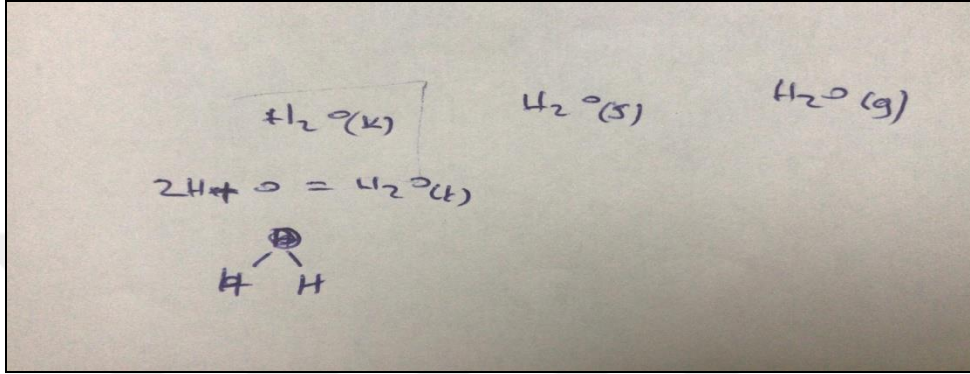 H₂O(k) H₂O(s) H₂O(g)
2H + O = H₂O(k)
O
H H